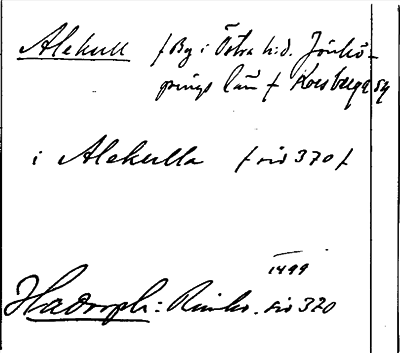 Alekull / By i Östra hd. Jönkö-
pings län / Korsberga sn
i Alekulla / sid 370 /
1499
Hadorph: Rimkr. sid 320